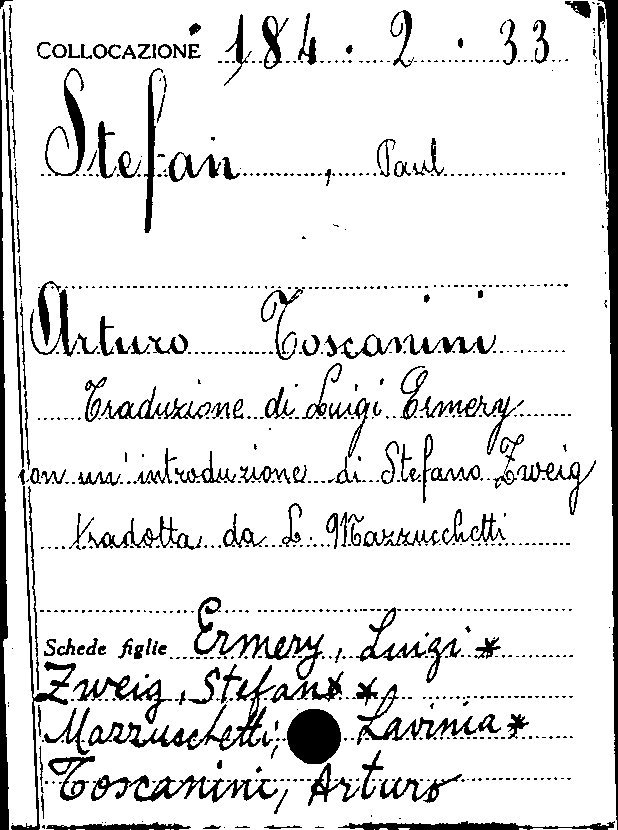 COLLOCAZIONE 184 . 2 . 33
Stefan , Paul
Arturo Toscanini
Traduzione di Luigi Ermery
con un' introduzione di Stefano Zweig
tradotta da L. Mazzucchetti
Schede figlie Ermery, Luigi *
Zweig, Stefan * *
Mazzuschetti, Lavinia *
Toscanini, Arturo